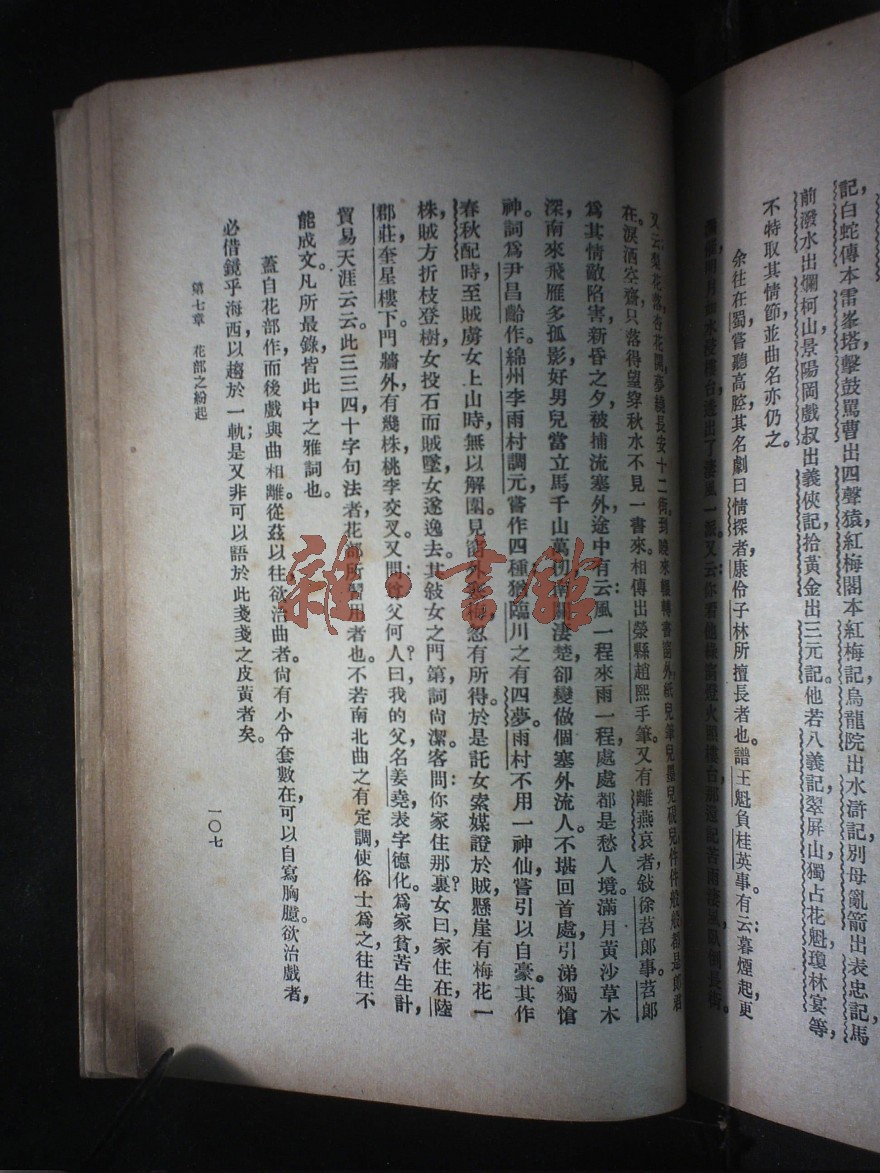 記白蛇傳本雷峯塔，擊鼓罵曹出四聲猿，紅梅閣本紅梅記，烏龍院出水滸記，別母亂箭出表忠記，馬
前潑水出爛柯山，景陽岡戲叔出義俠記，拾黃金出三元記。他若八義記，翠屏山，獨占花魁，瓊林宴等，
不特取其情節，並曲名亦仍之。
余往在蜀，嘗聽高腔，其名劇曰情探者，康份子林所擅長者也。譜王魁負桂英事。有云：暮煙起，更
明月如水浸樓台，透出了淒風一 又云：你看他綠窗燈火照樓台，那還記苦雨淒風 長街。
又云：梨花落，杏花開，夢繞長安十二街，到晚來輾轉書窗外，紙兒筆兒墨兒硯兒，件件般般都是郎君
在。淚洒空齋，只落得望穿秋水不見一書來。相傳出榮縣趙熙手筆。又有離燕哀者，敍徐苕郎事。苕郎
爲其情敵陷害，新昏之夕，被捕流塞外，途中有云：風一程來雨一程，處處都是愁人境。滿月黃沙草木
深，南來飛雁多孤影，好男兒當立馬千山萬 南關淒楚，卻變做個塞外流人。不堪回首處，引涕獨愴
神。詞爲尹昌齡作。綿州李雨村調元，嘗作四種，猶臨川之有四夢。雨村不用一神仙，嘗引以自豪。其作
春秋配時，至賊虜女上山時，無以解圍。見窗外 梅，忽有所得，於是託女索媒證於賊，懸崖有梅花一
株，賊方折枝登樹，女投石而賊墜，女遂逸去。其敍女之門第，詞尙潔：客問你家住那裏？女曰，家住在陸
郡莊，奎星樓下。門牆外，有幾株桃李交叉。又問 父何人？曰我的父，名姜堯，表字德化。爲家貧，苦生計，
貿易天涯云云。此三三四十字句法者，花部所習用者也。不若南北曲之有定調，使俗士爲之，往往不
能成文。凡所最錄，皆此中之雅詞也。
蓋自花部作而後戲與曲相離。從茲以往，欲治曲者，尙有小令套數在，可以自寫胸臆。欲治戲者，
必借鏡乎海西，以趨於一軌；是又非可以語於此戔戔之皮黃者矣。
第七章　花部之紛起
一〇七
雜·書館